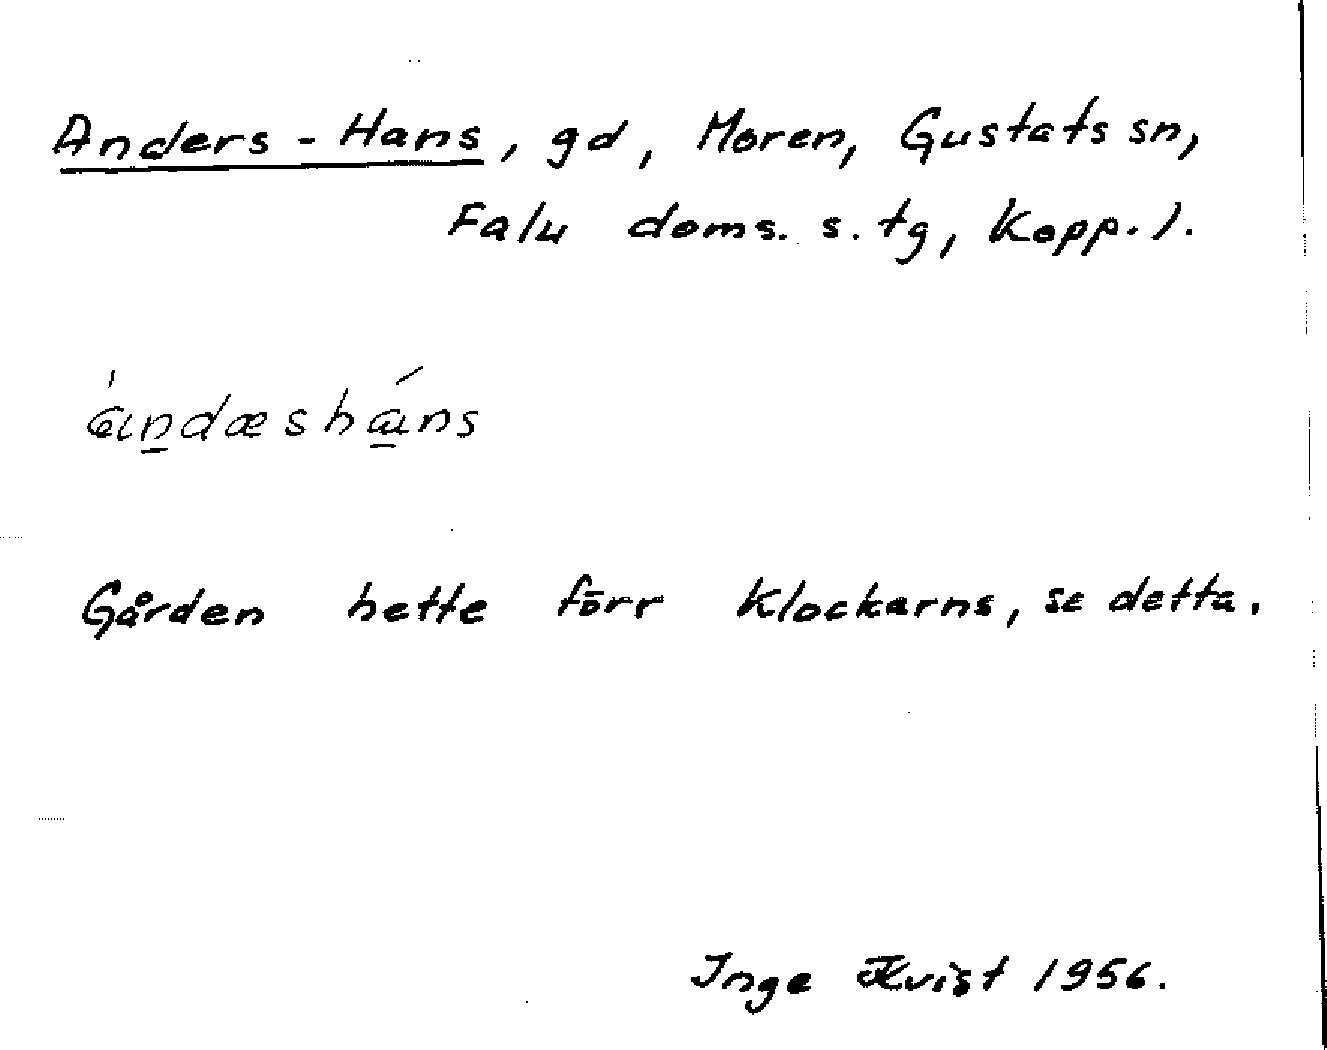 Anders-Hans, gd, Moren, Gustafs sn,
Falu doms. s. tg, Kopp. l.
andæshans
Gården hette förr Klockarns, se detta.
Inge Kvist 1956.